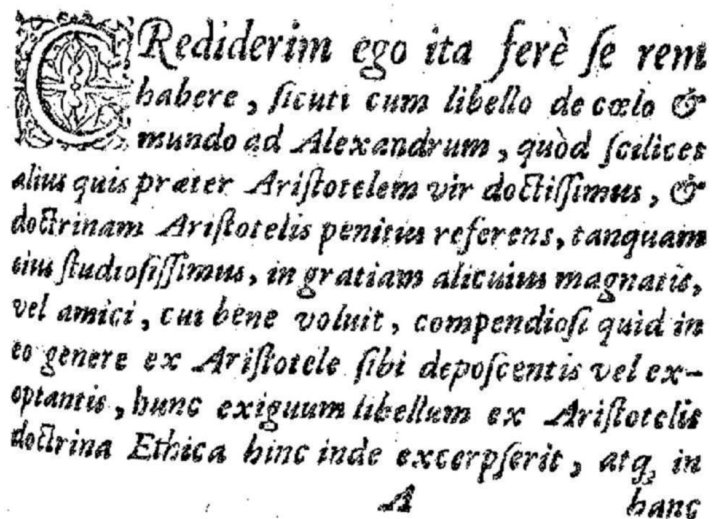 CRediderim ego ita ferè ſe rem
habere, ſicuti cum libello de cœlo &
mundo ad Alexandrum, quòd ſcilicet
alius quis præter Ariſtotelem vir doctiſſimus, &
doctrinam Ariſtotelis penitus referens, tanquam
eius ſtudioſiſſimus, in gratiam alicuius magnatis,
vel amici, cui bene voluit, compendioſi quid in
eo genere ex Ariſtotele ſibi depoſcentis vel ex-
optantis, hunc exiguum libellum ex Ariſtotelis
doctrina Ethica hinc inde excerpſerit, atq; in
A hanc